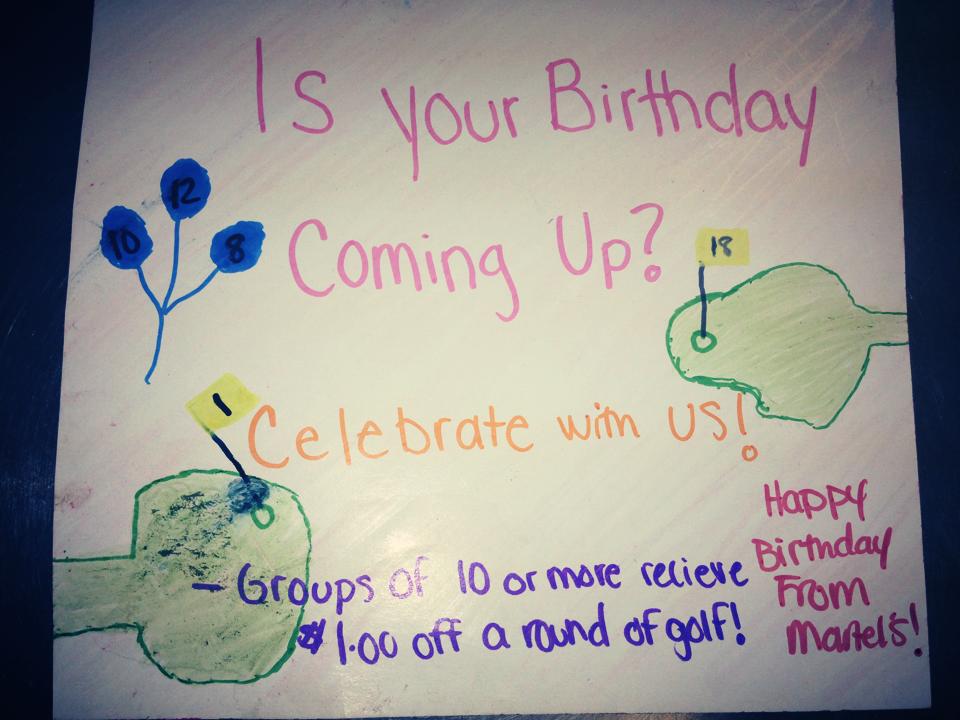 Is your Birthday
12
10
8
Coming Up?
18
1
Celebrate with us!
- Groups of 10 or more relieve
$1.00 off a round of golf!
Happy
Birthday
From
Martel's!